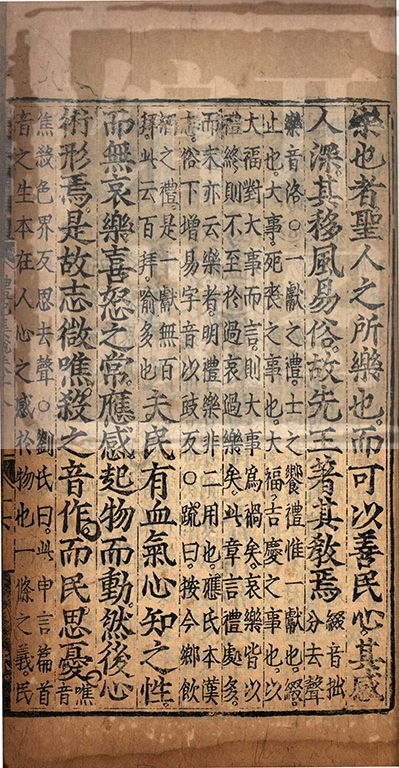 樂也者聖人之所樂也而可以善民心其感
人深其移風易俗故先王著其教焉
綴音拙
分去聲
樂音洛○一獻之禮士之饗禮惟一獻也綴
止也大事死喪之事也大福吉慶之事也以
大福對大事而言則大事為禍矣哀樂皆以
禮終則不至於過哀過樂矣此章言禮處多
而末亦云樂者明禮樂非二用也應氏本漢
志俗下增易字音以豉反○疏曰按今鄉飲
酒之禮是一獻無百
拜此云百拜喻多也
夫民有血氣心知之性
而無哀樂喜怒之常應感起物而動然後心
術形焉是故志微噍殺之音作而民思憂
噍
音
焦殺色界反思去聲○劉氏曰此申言篇首
音之生本在人心之感於物也一條之義民